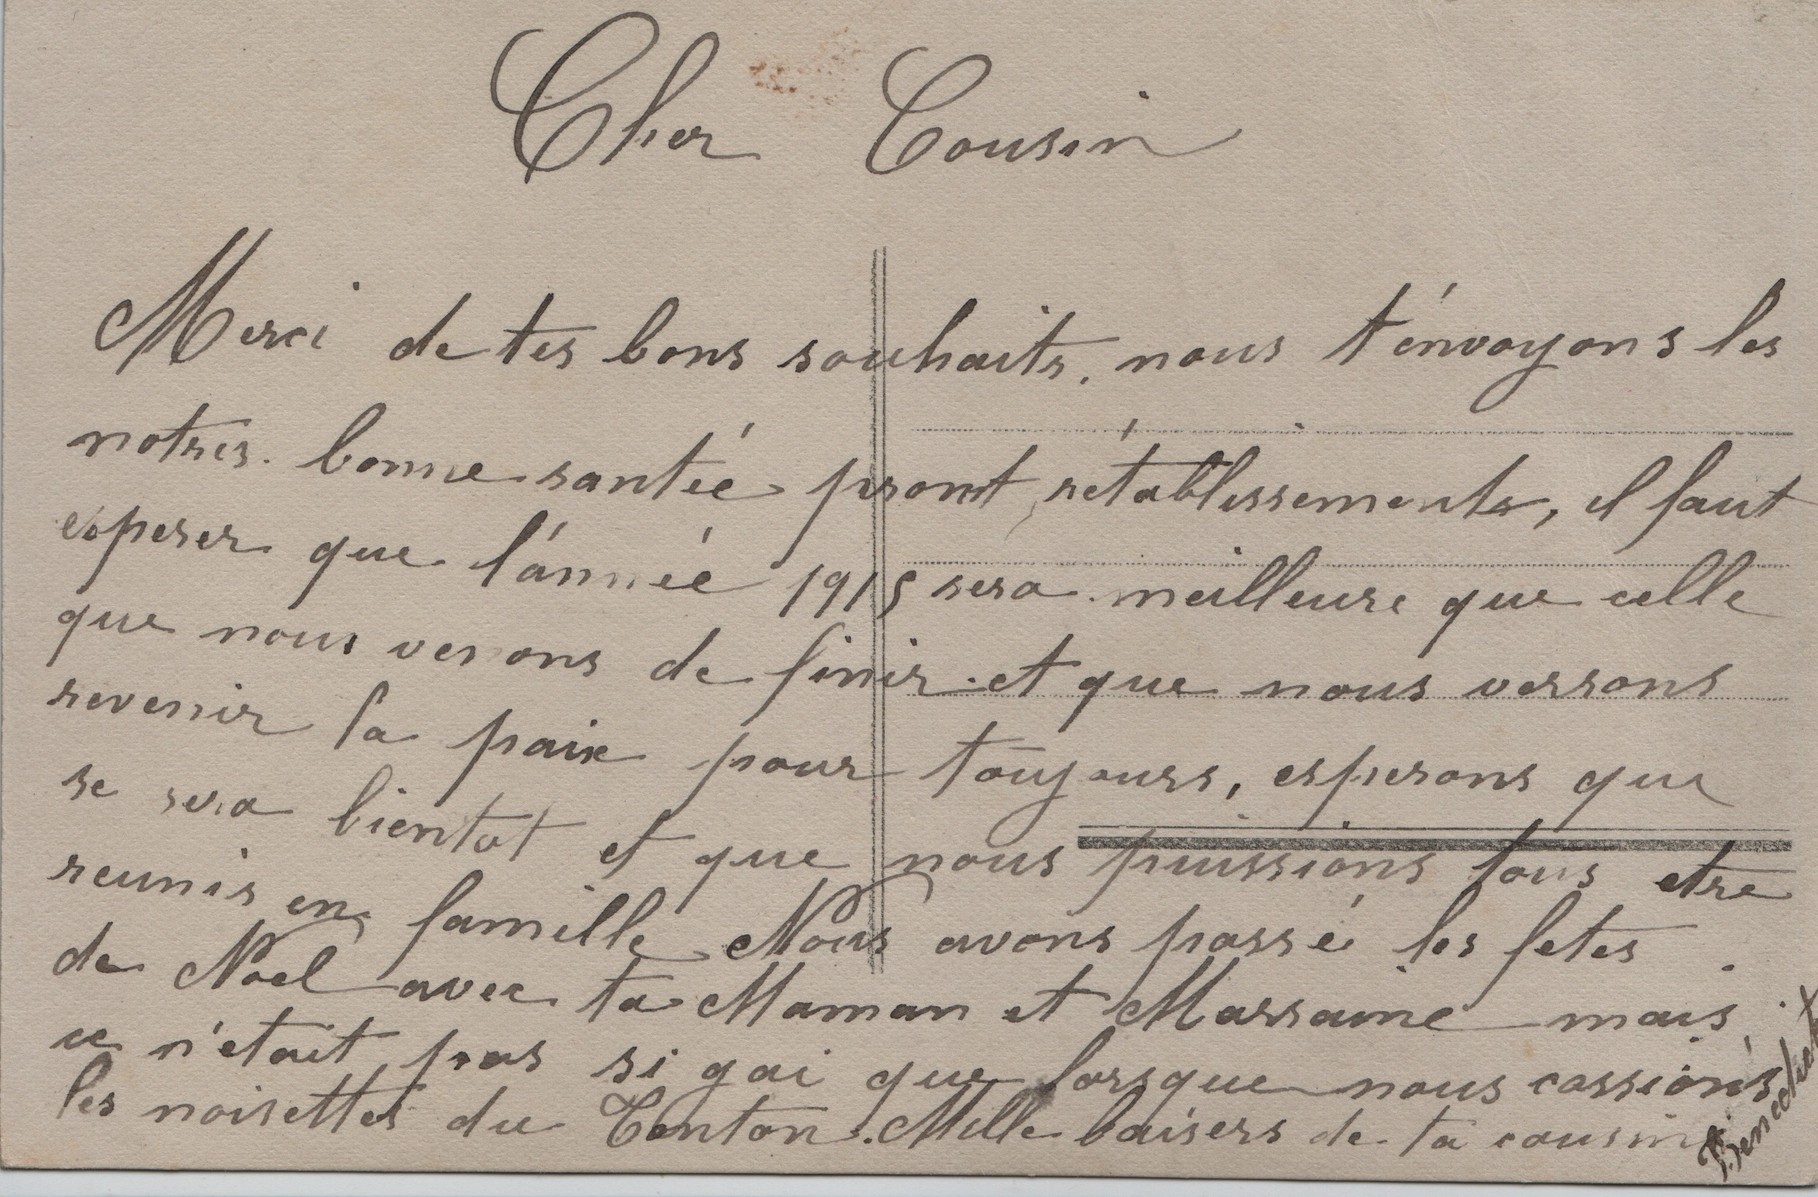 Cher Cousin
Merci de tes bons souhaits. nous t'énvoyons les
notres. bonne santée promt rétablissements, il faut
esperer que l'ánnée 1915 sera meilleure que celle
que nous venons de finir. et que nous verrons
revenir la paix pour toujours, esperons que
se sera bientot et que nous puissions tous etre
reunis en famille Nous avons passé les fetes
de Noel avec ta Maman et Marraine mais
ce n'etait pas si gai que lorsque nous cassions
les noisettes du Tonton. Mille baisers de ta cousine